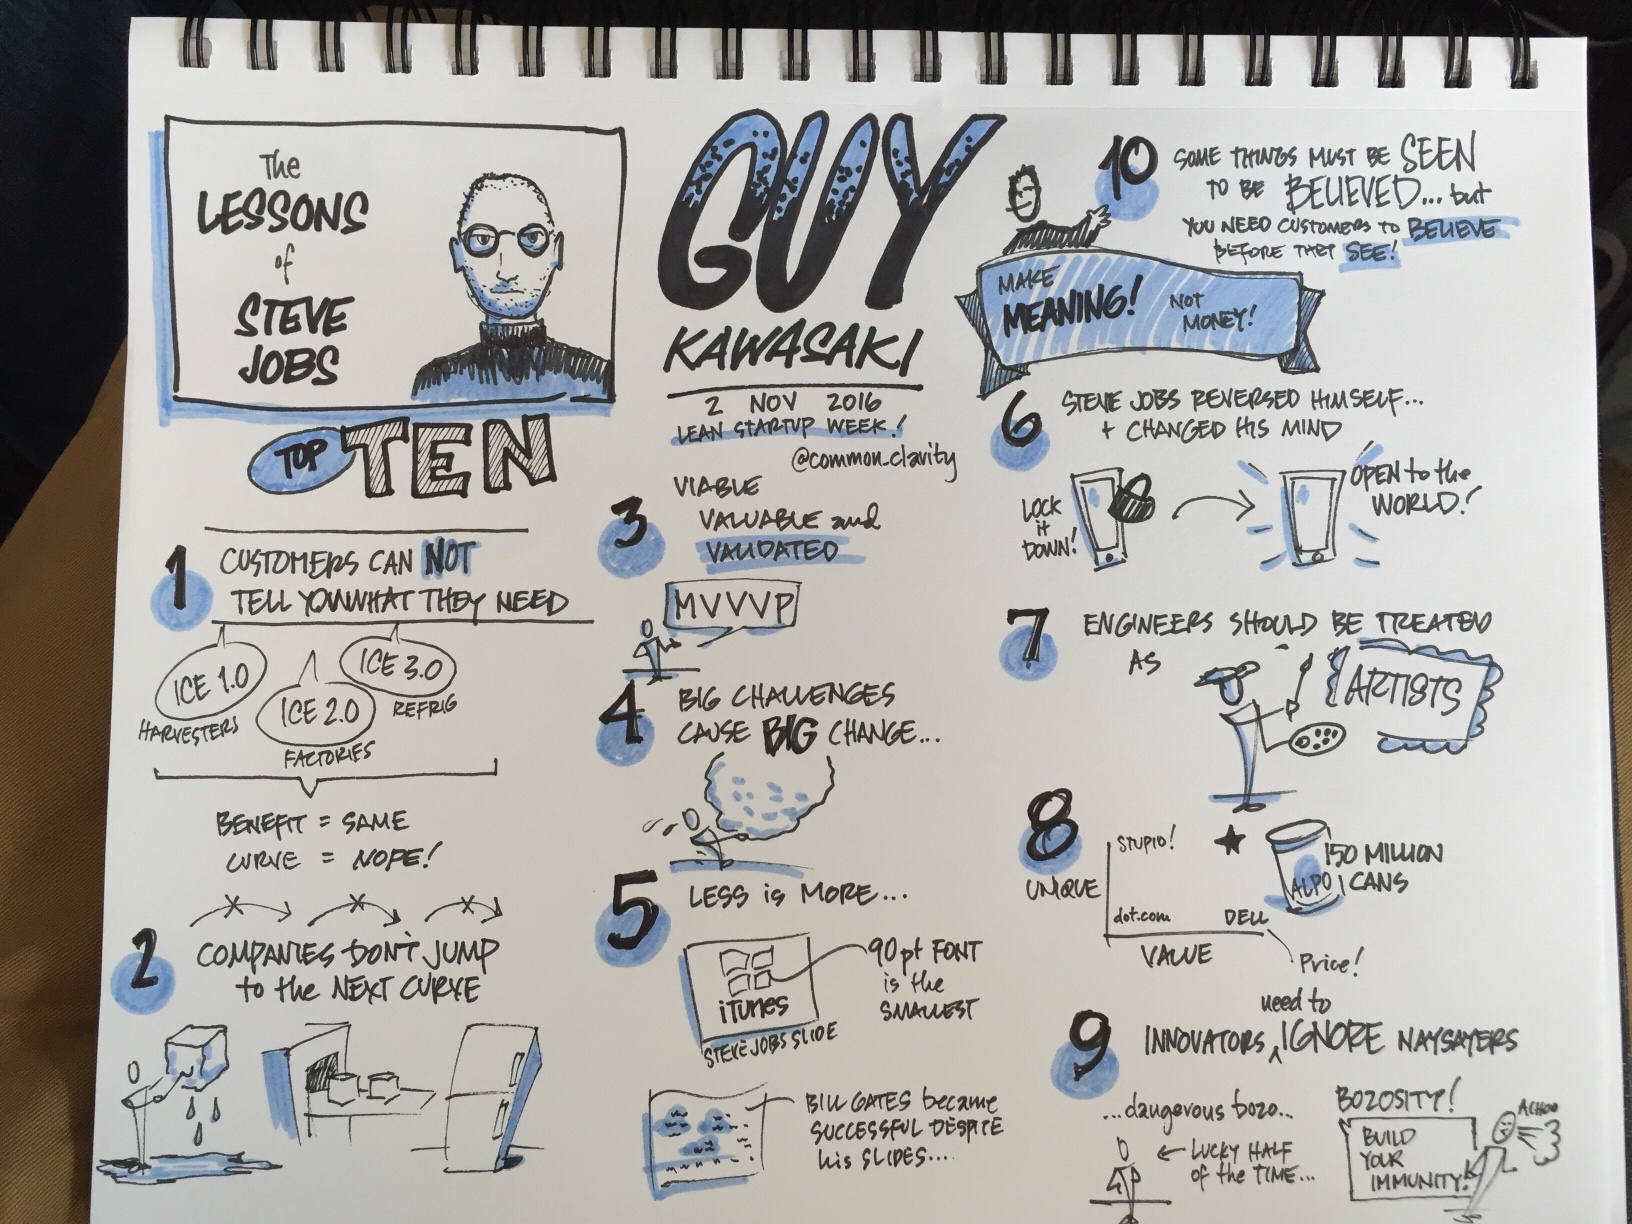 The
LESSONS
of
STEVE
JOBS
TOP TEN
GUY
KAWASAKI
2 NOV 2016
LEAN STARTUP WEEK!
@common_clarity
1 CUSTOMERS CAN NOT
TELL YOU WHAT THEY NEED
ICE 1.0
HARVESTERS
ICE 2.0
FACTORIES
ICE 3.0
REFRIG
BENEFIT = SAME
CURVE = NOPE!
2 COMPANIES DON'T JUMP
to the NEXT CURVE
3 VIABLE
VALUABLE and
VALIDATED
MVVVP
4 BIG CHALLENGES
CAUSE BIG CHANGE...
5 LESS is MORE...
iTunes
STEVE JOBS SLIDE
90pt FONT
is the
SMALLEST
BILL GATES became
SUCCESSFUL DESPITE
his SLIDES....
10 SOME THINGS MUST BE SEEN
TO BE BELIEVED... but
YOU NEED CUSTOMERS TO BELIEVE
BEFORE THEY SEE!
MAKE
MEANING!
NOT
MONEY!
6 STEVE JOBS REVERSED HIMSELF...
+ CHANGED HIS MIND
LOCK
it
DOWN!
OPEN to the
WORLD!
7 ENGINEERS SHOULD BE TREATED
AS
ARTISTS
8
UNIQUE
STUPID!
dot.com
DELL
VALUE
Price!
ALPO
150 MILLION
CANS
9 INNOVATORS need to IGNORE NAYSAYERS
...dangerous bozo...
← LUCKY HALF
of the TIME...
BOZOSITY!
BUILD
YOUR
IMMUNITY!
ACHOO